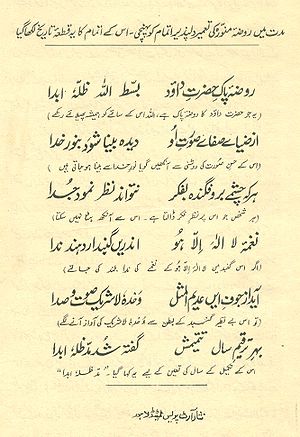 مدت میں روضۂ منورہ کی تعمیر دلپذیر اتمام کو پہنچی۔ اس کے اتمام کا یہ قطعۂ تاریخ لکھا گیا
روضۂ پاکِ حضرتِ داؤد بسّط اللہ ظلّہٗ ابدا
(یہ جو حضرت داؤد کا روضۂ پاک ہے، اللہ اس کے سائے کو ہمیشہ پھیلائے رکھے)
از ضیائے صفائے صوتِ اُو دیدہ بینا شود بنورِ خدا
(اس کے حسنِ صورت کی روشنی سے آنکھیں گویا نورِ خدا سے بینا ہو جاتی ہیں)
ہر کہ چشمے برو فگندہ بفکر نتواند نظر نمود جُدا
(ہر شخص جو اس پر نظرِ فکر ڈالتا ہے۔ اس سے آنکھ ہٹا نہیں سکتا)
نغمۂ لا الٰہ الّا ہُو اندریں گنبد ار دہند ندا
(اگر اس گنبد میں لا الٰہ الّا ہُو کے نغمے کی ندا بلند کی جائے)
آید از جوف ایں عدیم المثل وحدہٗ لا شریک صوت و صدا
(تو اس بے نظیر گنبد کے بطن سے وحدہٗ لا شریک کی آواز آنے لگے)
بہرِ ترقیم سالِ تتمیمش گفتہ شد مدّ ظلّہٗ ابدا
(اس کے تکمیل کے سال کی تعیین کے لیے یہ کہا گیا۔ "مدّ ظلّہٗ ابدا")
آرٹ پریس لمیٹڈ لاہور